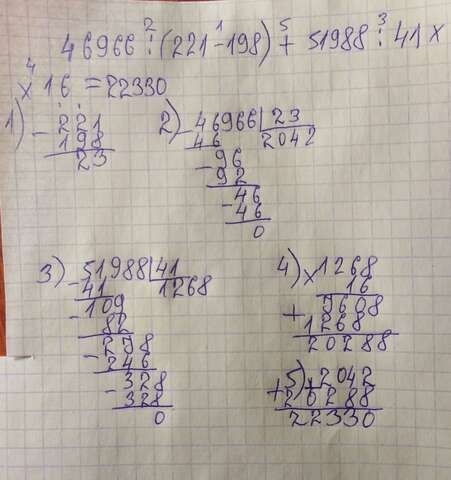 2 1 5 3
46966 : (221 - 198) + 51988 : 41 ×
4
× 16 = 22330
1) - 221
198
23
2) - 46966 | 23
46 2042
- 96
92
- 46
46
0
3) - 51988 | 41
41 1268
- 109
82
- 278
246
- 328
328
0
4) × 1268
16
+ 7608
1268
20288
5) + 2042
20288
22330